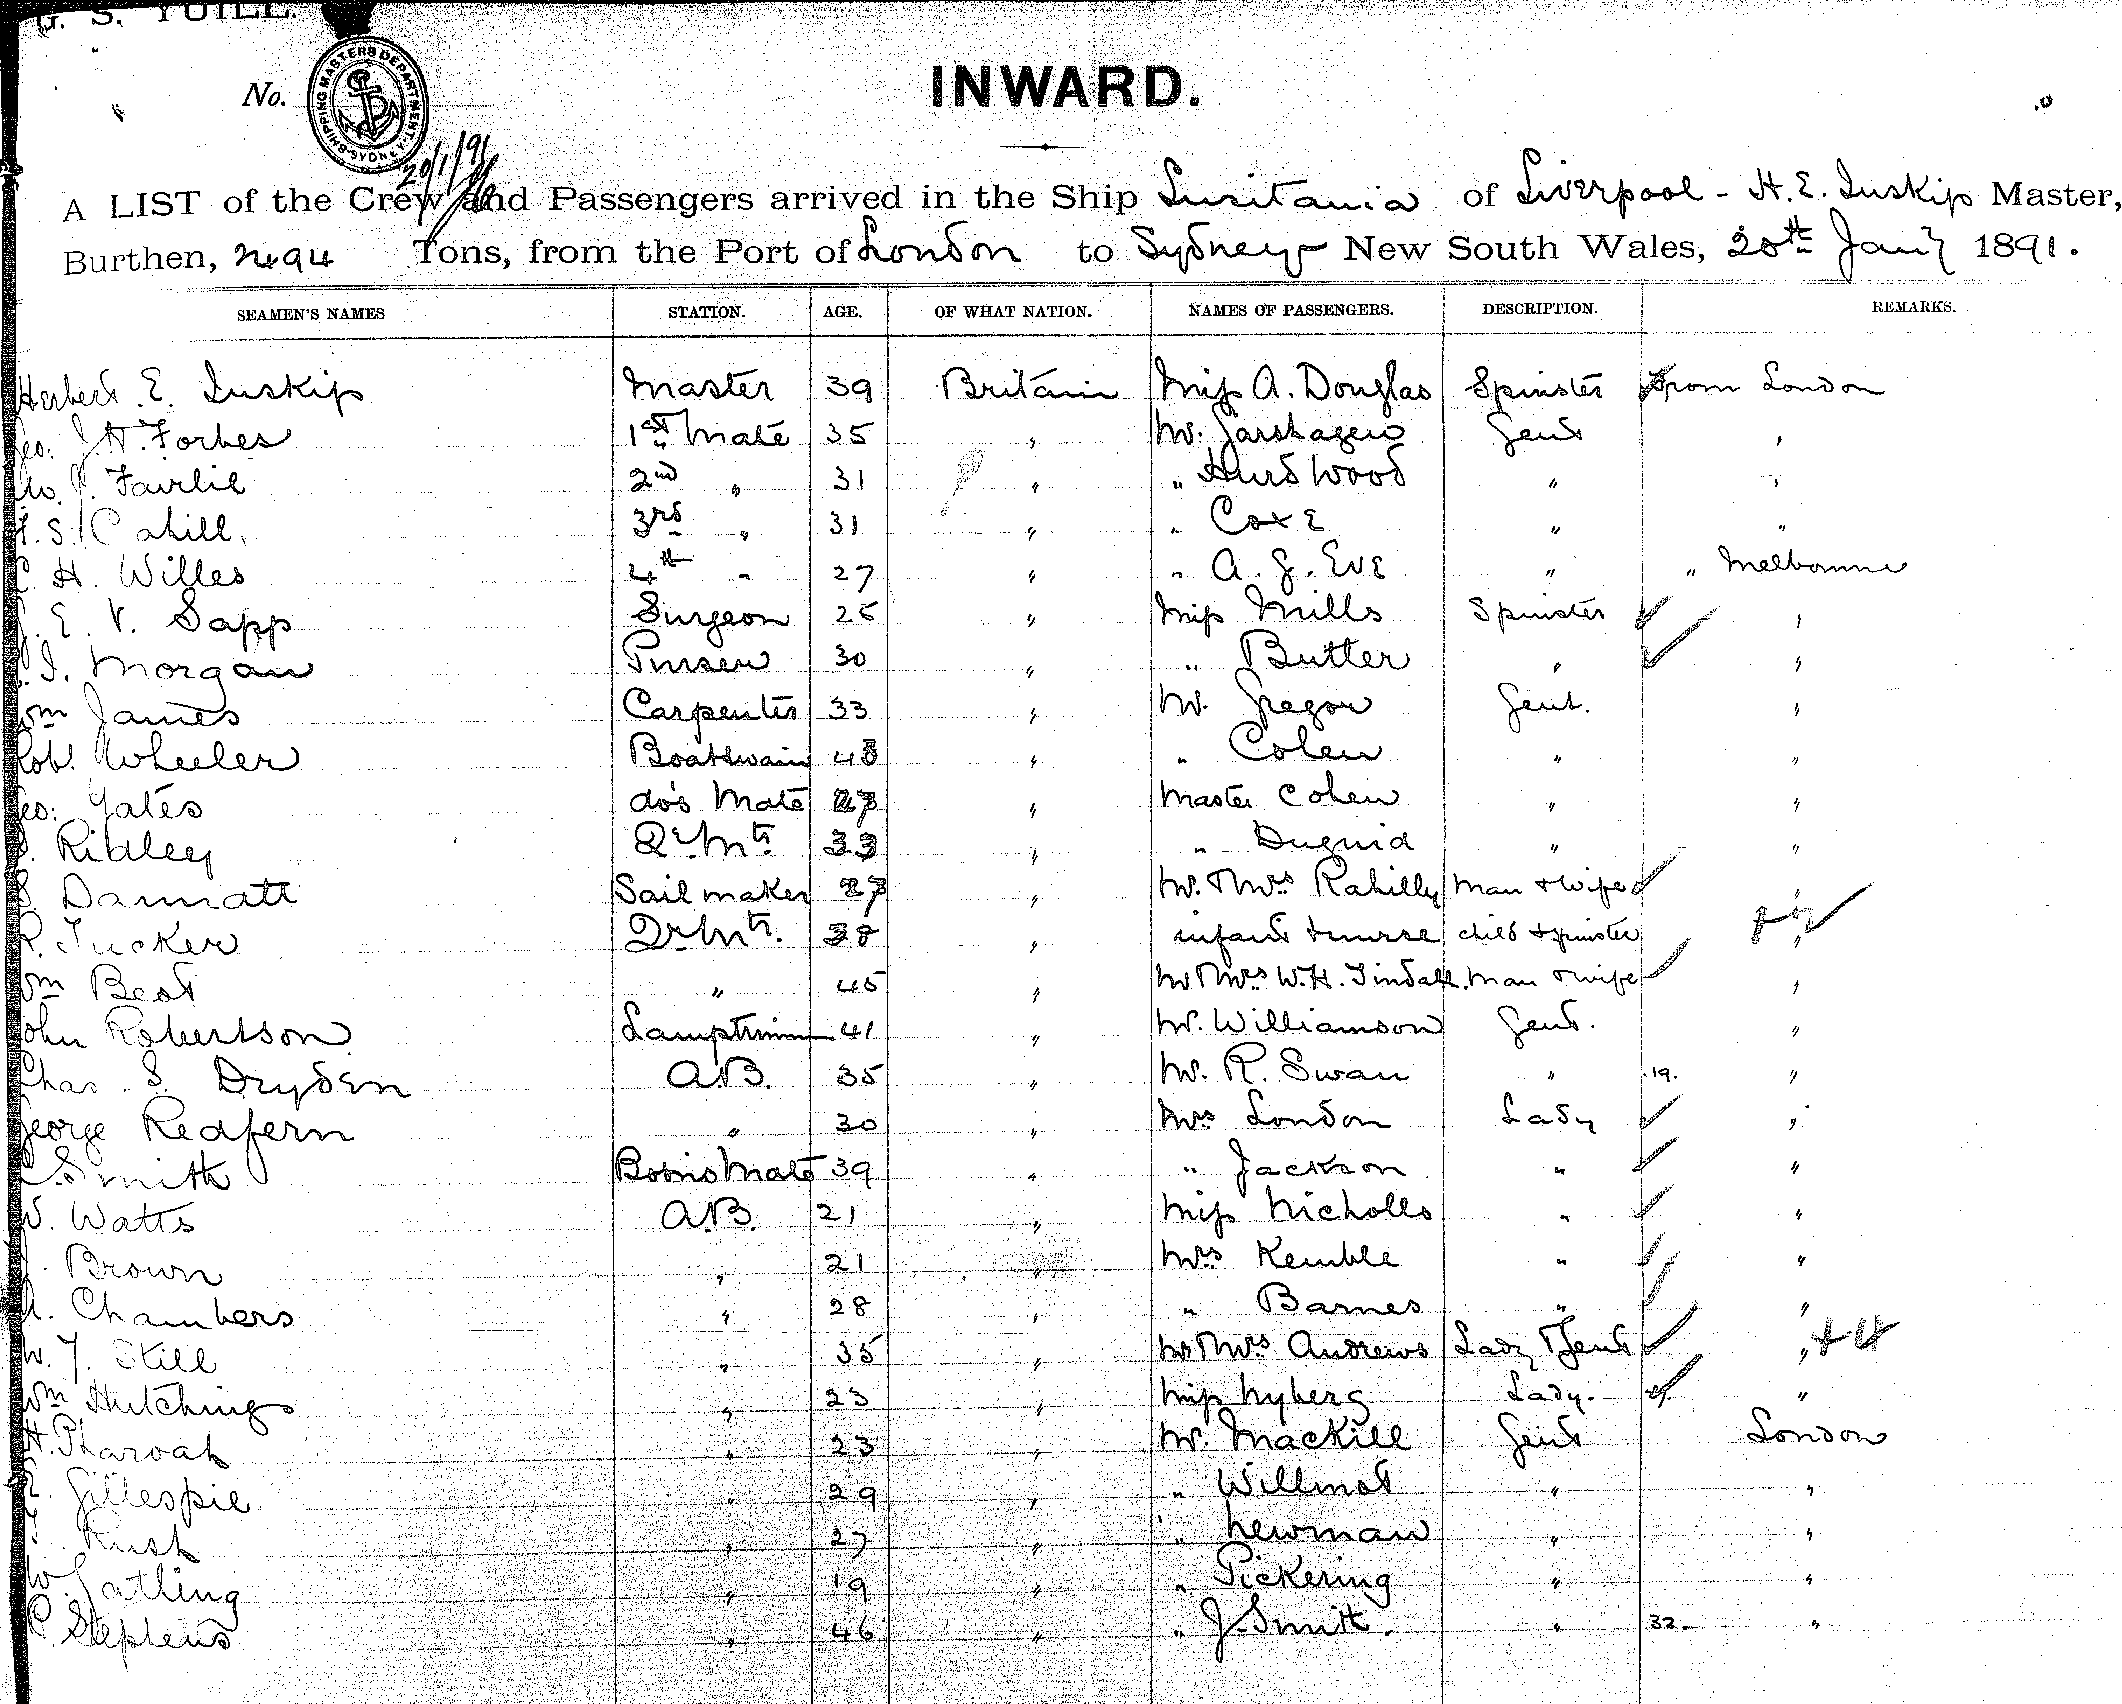 G. S. YUILL.
No.
SHIPPING MASTERS DEPARTMENT SYDNEY
20/1/91
INWARD.
A LIST of the Crew and Passengers arrived in the Ship Lusitania of Liverpool - H. E. Inskip Master,
Burthen, 2494 Tons, from the Port of London to Sydney New South Wales, 20th Jany 1891.
SEAMEN'S NAMES STATION. AGE. OF WHAT NATION. NAMES OF PASSENGERS. DESCRIPTION. REMARKS.
Herbert E. Inskip Master 39 Britain Miss A. Douglas Spinster From London
Geo. J. H. Forbes 1st Mate 35 " Mr. Garshagen Gent "
Fairlie 2nd " 31 " " Hurd Wood " "
S. Cahill 3rd " 31 " " Coxe " "
C. H. Willes 4th " 27 " " A. J. Eve " " Melbourne
E. V. Sapp Surgeon 25 " Miss Mills Spinster "
J. Morgan Purser 30 " " Butter " "
Wm James Carpenter 33 " Mr. Gregor Gent. "
Rob. Wheeler Boatswain 48 " " Cohen " "
Geo: Yates do's Mate 27 " Master Cohen " "
Ridley Qr Mtr 33 " " Duguid " "
S. Dannatt Sail maker 27 " Mr. & Mrs Rahilly Man & Wife "
R. Tucker Qr Mtr. 38 " infant & nurse child & spinster "
Wm Best " 45 " Mr & Mrs W. H. Tindall. Man & wife "
John Robertson Lamptrimmer 41 " Mr. Williamson Gent. "
Chas. S. Dryden A.B. 35 " Mr. R. Swan " 19. "
George Redfern " 30 " Mrs London Lady "
C. Smith Bosns Mate 39 " " Jackson " "
W. Watts A.B. 21 " Miss Nicholls " "
J. Brown " 21 " Mrs Kemble " "
A. Chambers " 28 " " Barnes " "
W. J. Still " 35 " Mr & Mrs Andrews Lady & Gent "
Wm Hutchings " 23 " Miss Nyberg Lady. "
H. Pharoah " 23 " Mr. Mackill Gent London
Gillespie " 29 " " Willmot " "
Rush " 27 " " Newman " "
W. Gatling " 19 " " Pickering " "
C. Stephens " 46 " " J. Smith. " 32. "